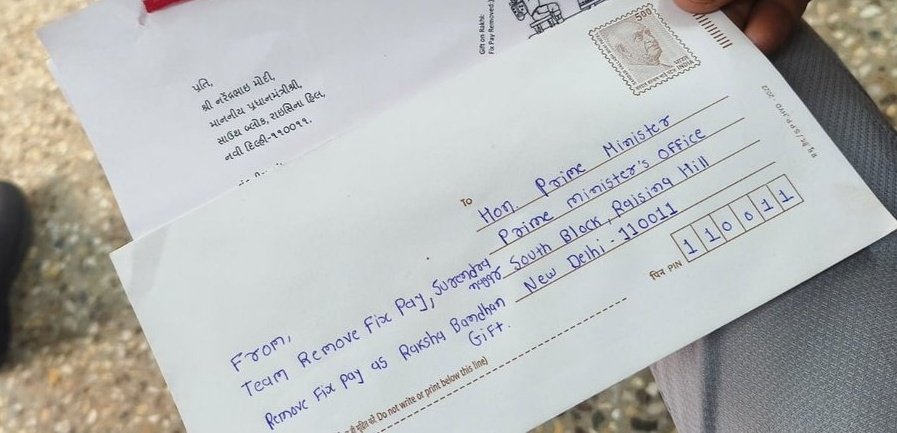 Gift on Rakhi:
Fix Pay Removed
પ્રતિ,
શ્રી નરેન્દ્રભાઇ મોદી,
માનનીય પ્રધાનમંત્રીશ્રી,
સાઉથ બ્લોક, રાઇસિના હિલ,
નવી દિલ્હી-૧૧૦૦૧૧.
500
भारत INDIA
To
Hon. Prime Minister
Prime Minister's Office
South Block, Raising Hill
New Delhi - 110011
पिन PIN
110011
From,
Team Remove Fix Pay, Surendra
nagar
Remove Fix Pay as Raksha Bandhan
Gift.
Do not write or print below this line)